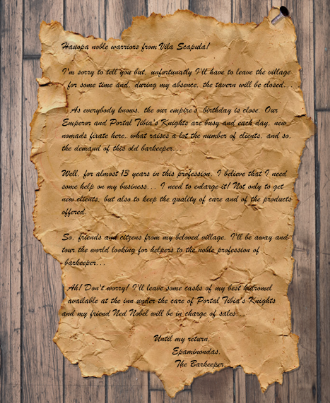 Hanoya noble warriors from Vila Scapula!
I'm sorry to tell you but, unfortunatly I'll have to leave the village
for some time and, during my absence, the tavern will be closed...
As everybody knows, the our empire's birthday is close. Our
Emperor and Portal Tibia's Knights are busy and each day, new
nomads fixate here, what raises a lot the number of clients, and so,
the demand of this old barkeeper.
Well, for almost 15 years on this profession, I believe that I need
some help on my business... I need to enlarge it! Not only to get
new clients, but also to keep the quality of care and of the products
offered.
So, friends and citzens from my beloved village, I'll be away and
tour the world looking for helpers to the noble profession of
barkeeper...
Ah! Don't worry! I'll leave some casks of my best hidromel
available at the inn under the care of Portal Tibia's Knights
and my friend Ned Nobel will be in charge of sales.
Until my return,
Epaminondas,
The Barkeeper